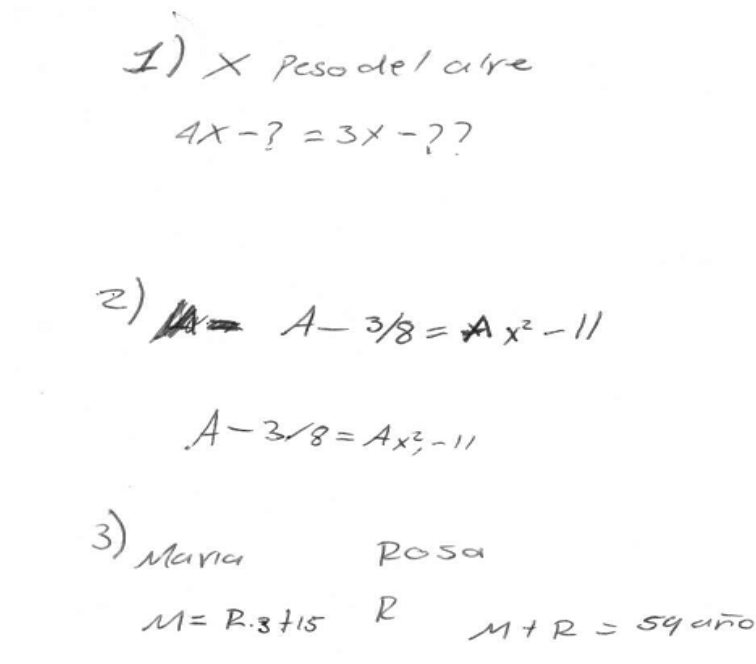 1) X Peso del aire
4X - ? = 3X - ??
2) A - 3/8 = A x² - 11
A - 3/8 = Ax² - 11
3) Maria Rosa
M = R.3+15 R M + R = 59 año